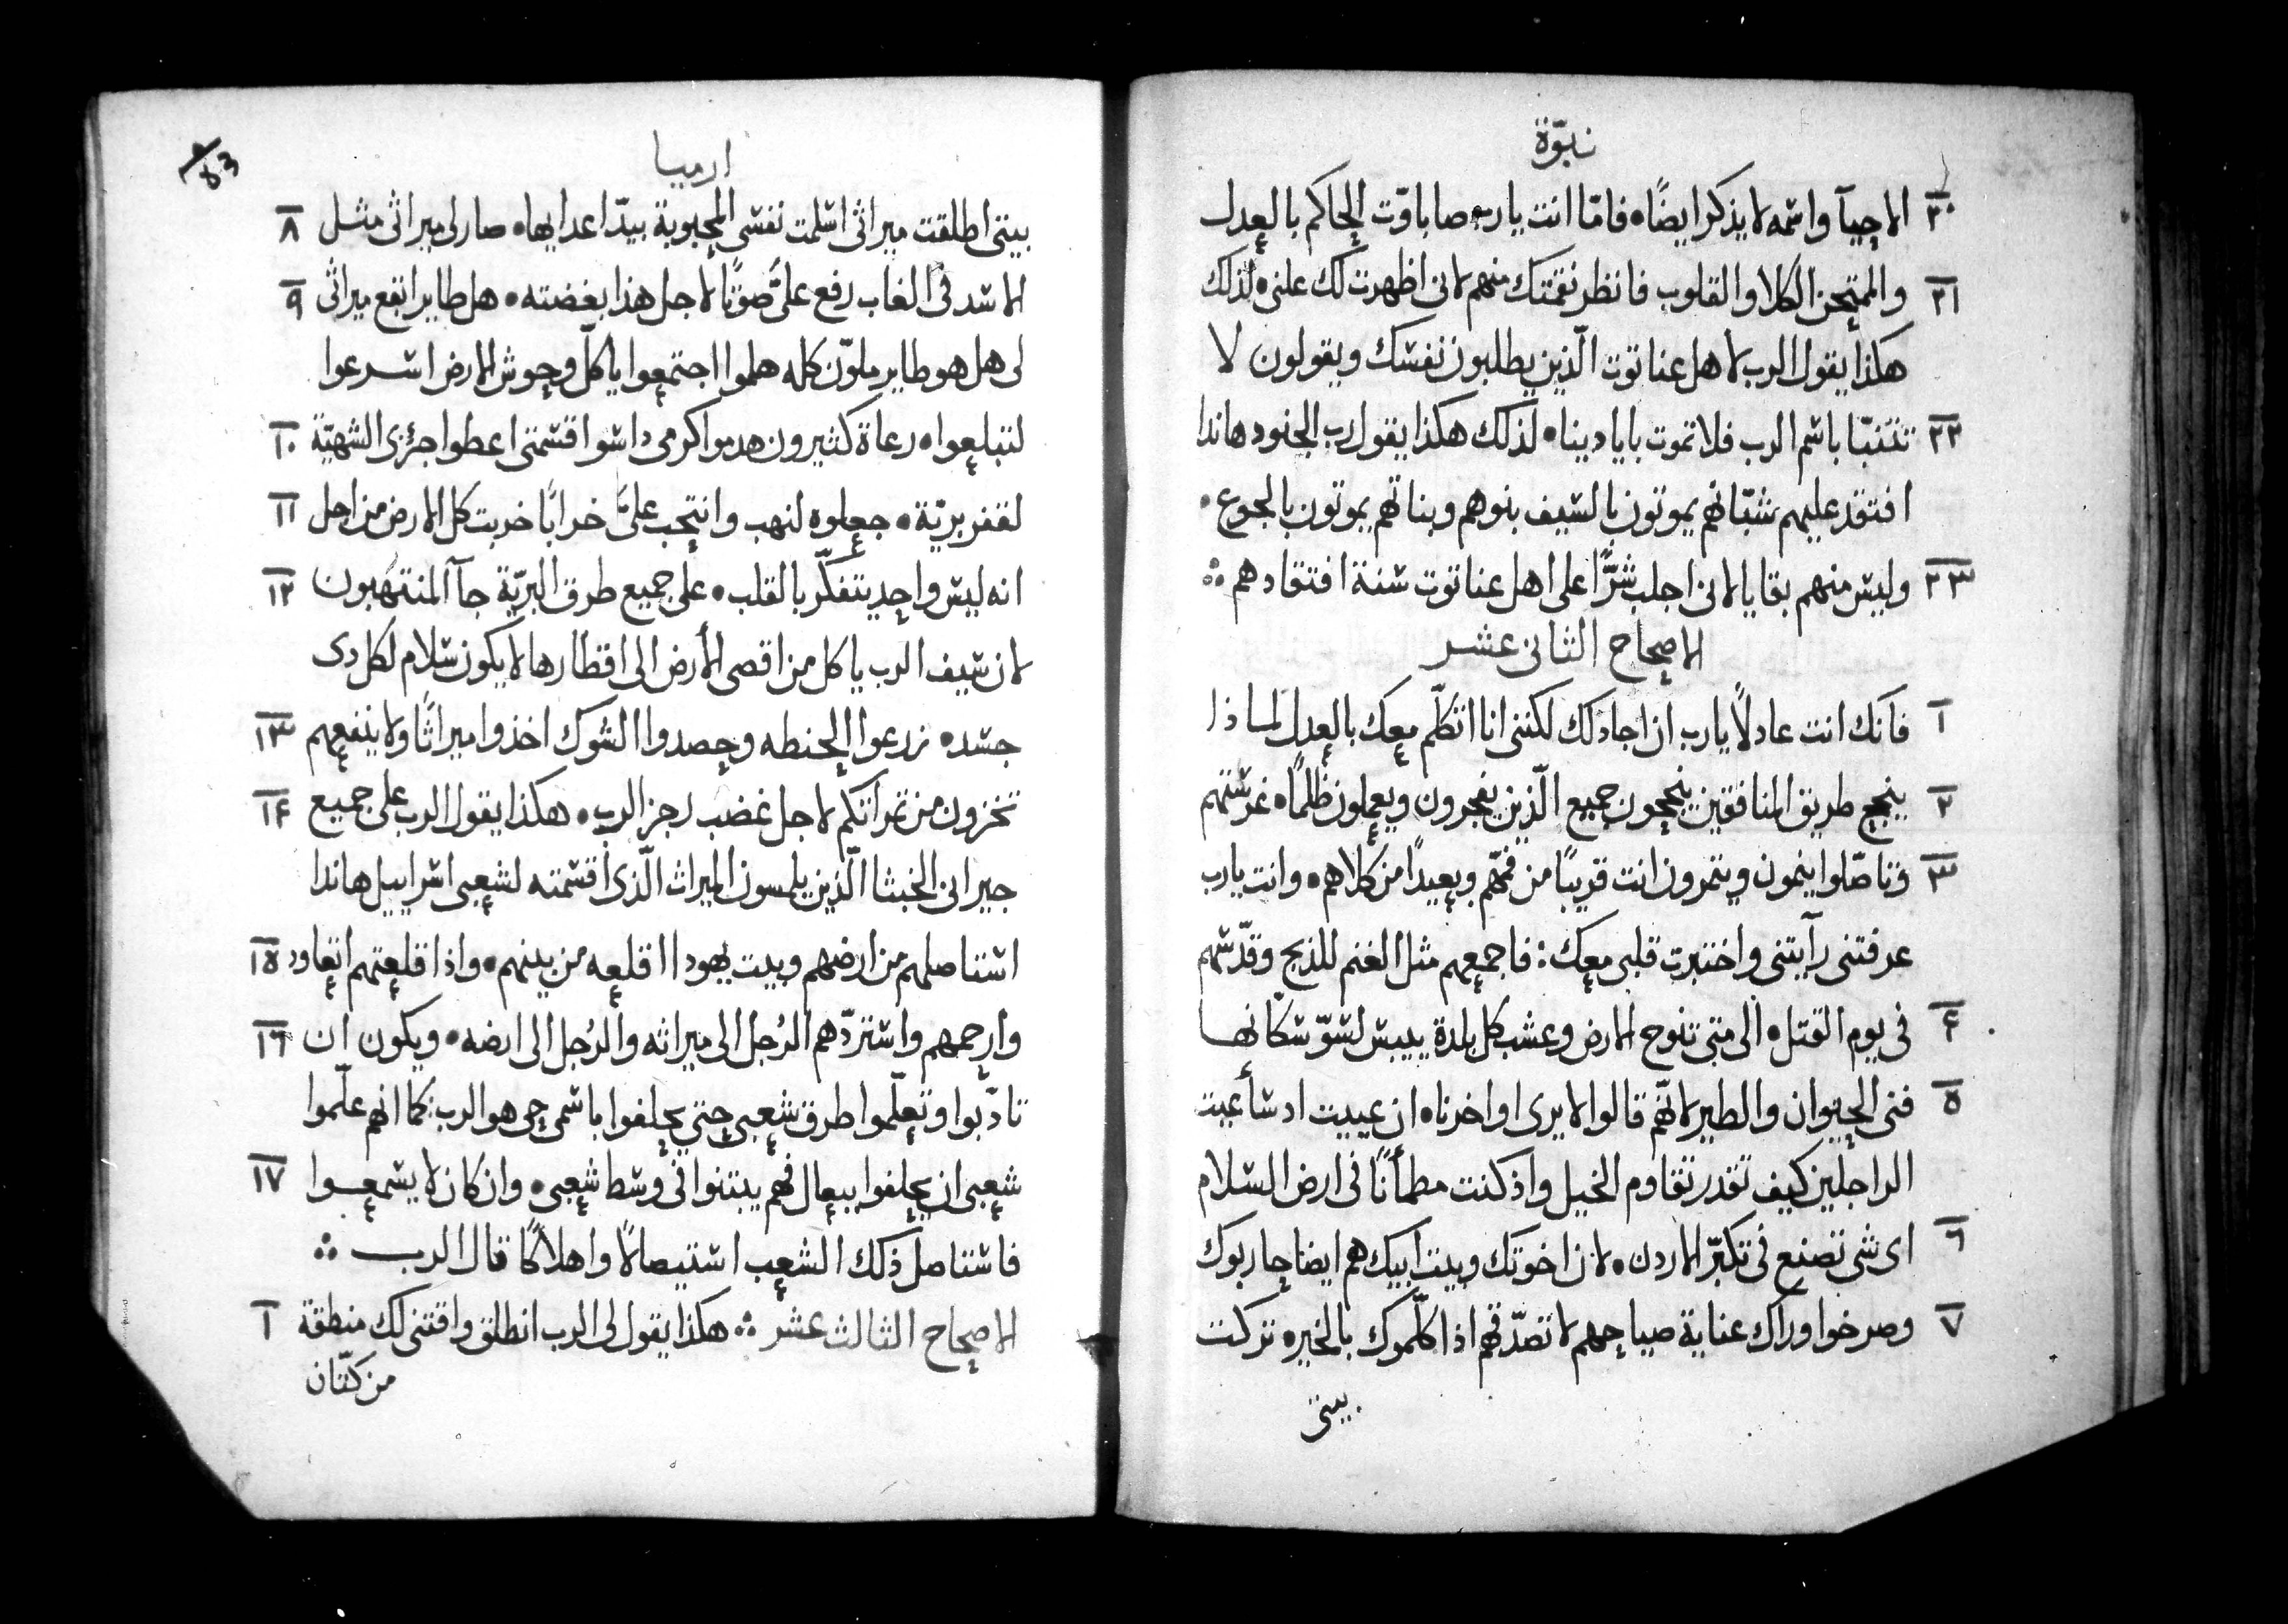 نبوّة
٢٠ الاحيآ واسمه لا يذكر ايضًا • فامّا انت يا رب صاباوت الحاكم بالعدل
٢١ والممتحن الكلا والقلوب فانظر نقمتك منهم لانى اظهرت لك علنى • لذلك
هكذا يقول الرب لاهل عناتوت الّذين يطلبون نفسك ويقولون لا
٢٢ تتنبّا باسم الرب فلا تموت بايادينا • لذلك هكذا يقول رب الجنود هاندا
افتقد عليهم شبّانهم يموتون بالسيف بنوهم وبناتهم يموتون بالجوع •
٢٣ وليس منهم بقايا لانى اجلب شرًّا على اهل عناتوت سنة افتقادهم ∴
الاصحاح الثانى عشر
١ فانك انت عادلًا يا رب ان اجادلك لكننى انا اتكلّم معك بالعدل لماذا
٢ ينجح طريق المنافقين ينجحون جميع الّذين يفجرون ويعملون ظلمًا • غرستهم
٣ وتاصّلوا ينمون ويثمرون انت قريبًا من فمّهم وبعيدًا من كلاهم • وانت يا رب
عرفتنى رآيتنى واختبرت قلبى معك : فاجمعهم مثل الغنم للذبح وقدّسهم
٤ فى يوم القتل • الى متى تنوح الارض وعشب كل بلدة ييبس لسوّ سكّانها
٥ فنى الحيوان والطير لانّهم قالوا لا يرى اواخرنا • ان عييت اد سأعيت
الراجلين كيف تقدر تقاوم الخيل واذ كنت مطمأنًا فى ارض السلام
٦ اى شى تصنع فى تكبّر الاردن • لان اخوتك وبيت ابيك هم ايضا حاربوك
٧ وصرخوا وراك عناية صياحهم لا تصدّقهم اذا كلّموك بالخير • تركت
بيتى
ارميا
بيتى اطلقت ميراثى اسلمت نفسى المحبوبة بيدّ اعدايها • صار لى ميراثى مثل ٨
الاسد فى الغاب رفع علىَّ صوتًا لاجل هذا بغضته • هل طاير ابقع ميراثى ٩
لى هل هو طاير ملوّن كله هلموا اجتمعوا يا كلّ وحوش الارض اسرعوا
لتبلعوا • رعاة كثيرون هدموا كرمى داسوا قسمتى اعطوا جزئى الشهيّة ١٠
لقفر بريّة • جعلوه لنهب وانتحب علىَّ خرابًا خربت كل الارض من اجل ١١
انه ليس واحد يتفكّر بالقلب • على جميع طرق البريّة جآ المنتهبون ١٢
لان سيف الرب ياكل من اقصى الأرض الى اقطارها لا يكون سلام لكل دى
جسد • زرعوا الحنطه وحصدوا الشوك اخذوا ميراثًا ولا ينفعهم ١٣
تخزون من ثمراتكم لاجل غضب رجز الرب • هكذا يقول الرب على جميع ١٤
جيرانى الخبثا الّذين يلمسون الميراث الّذى اقسمته لشعبى اسراييل هاندا
استاصلهم من ارضهم وبيت يهودا اقلعه من بينهم • واذا قلعتهم اتعاود ١٥
وارحمهم واستردّهم الرُجل الى ميراثه والرُجل الى ارضه • ويكون ان ١٦
تادّبوا وتعلّموا طرق شعبى حتى يحلفوا باسمى حى هو الرب : كما انهم علّموا
شعبى ان يحلفوا ببعال فهم يبتنوا فى وسط شعبى • وان كان لا يسمعوا ١٧
فاستاصل ذلك الشعب استيصالًا واهلاكًا قال الرب ∴
الاصحاح الثالث عشر ∴ هكذا يقول لى الرب انطلق واقتنى لك منطقة ١
من كتّان